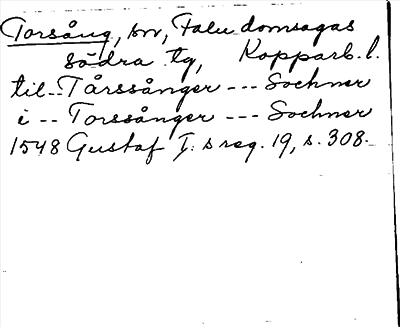 Torsång, sn, Falu domsagas
södra tg, Kopparb. l.
til -- Tårssånger --- Sochner
i -- Torssånger --- Sochner
1548 Gustaf I:s reg. 19, s. 308.